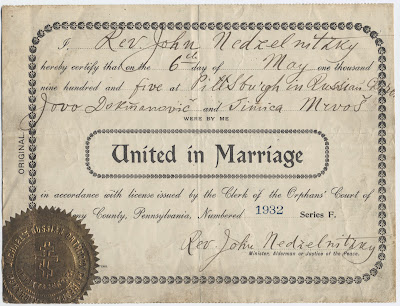 I, Rev. John Nedzelnitzky
hereby certify that on the 6th day of May one thousand
nine hundred and five at Pittsburgh in Russian
Jovo Dokmanović and Simica Mrvoš
WERE BY ME
United in Marriage
in accordance with license issued by the Clerk of the Orphans' Court of
ny County, Pennsylvania, Numbered 1932 Series F.
Rev. John Nedzelnitzky
Minister, Alderman or Justice of the Peace.
ORIGINAL